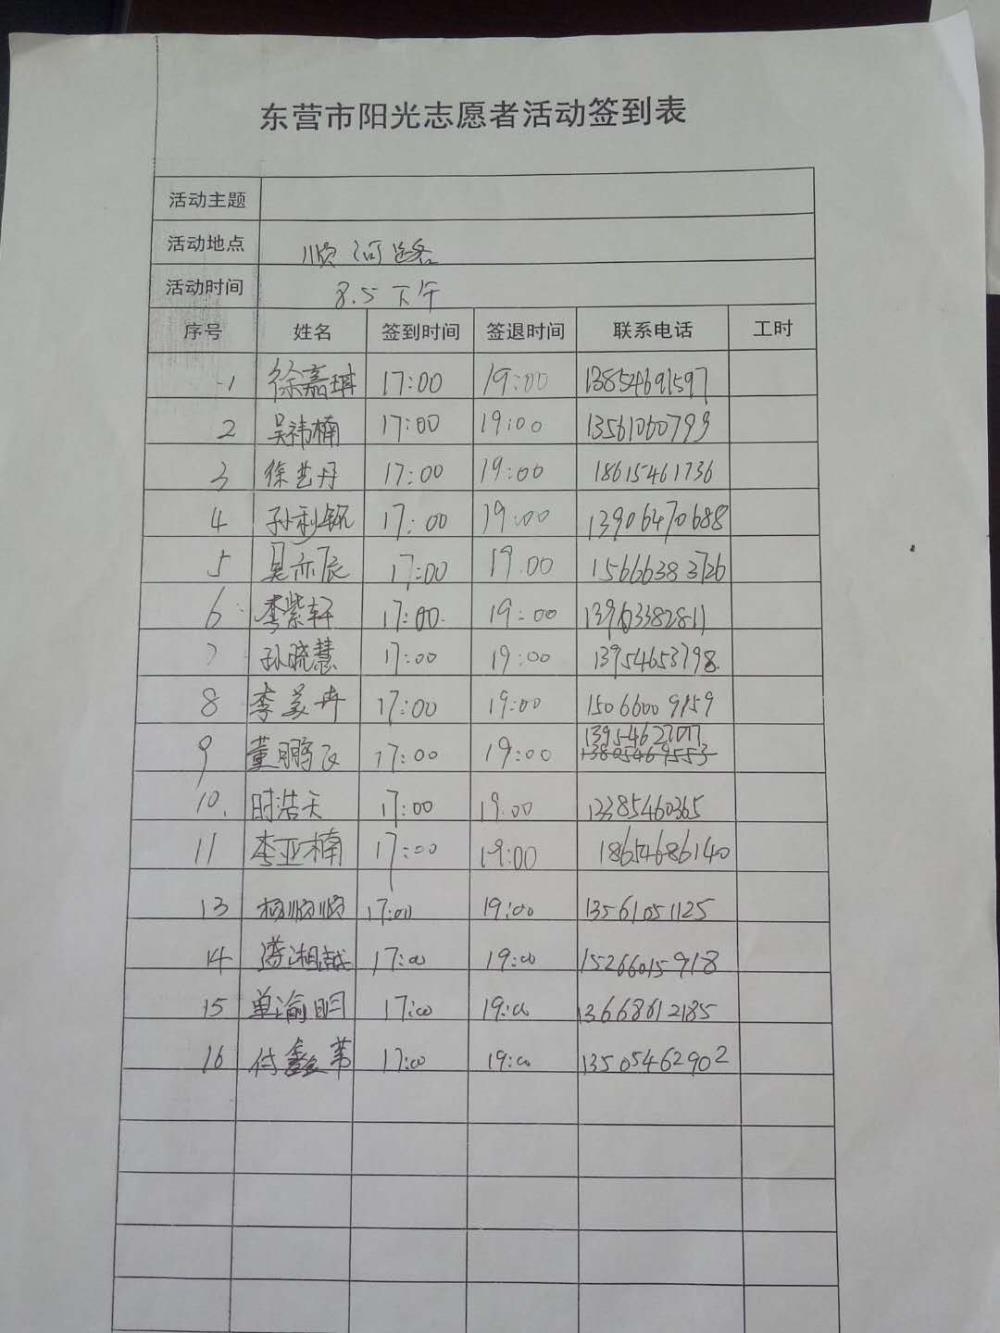 东营市阳光志愿者活动签到表
活动主题
活动地点 顺河路
活动时间 8.5 下午
序号 姓名 签到时间 签退时间 联系电话 工时
1 徐嘉琪 17:00 19:00 13854691597
2 吴祎楠 17:00 19:00 13561060799
3 徐艺丹 17:00 19:00 18615461736
4 孙利 17:00 19:00 13906470688
5 吴亦辰 17:00 19.00 15666383726
6 李紫轩 17:00 19:00
7 孙晓慧 17:00 19:00 13954653798
8 李美冉 17:00 19:00 15066009159
9 董鹏飞 17:00 19:00 13954627077
10. 时浩天 17:00 19.00 13385460365
11 李亚楠 17:00 19:00 18654686140
13 杨顺顺 17:00 19:00 13561051125
14 湘越 17:00 19:00 15266015918
15 单渝明 17:00 19:00 13668612185
16 付鑫 17:00 19:00 13505462902